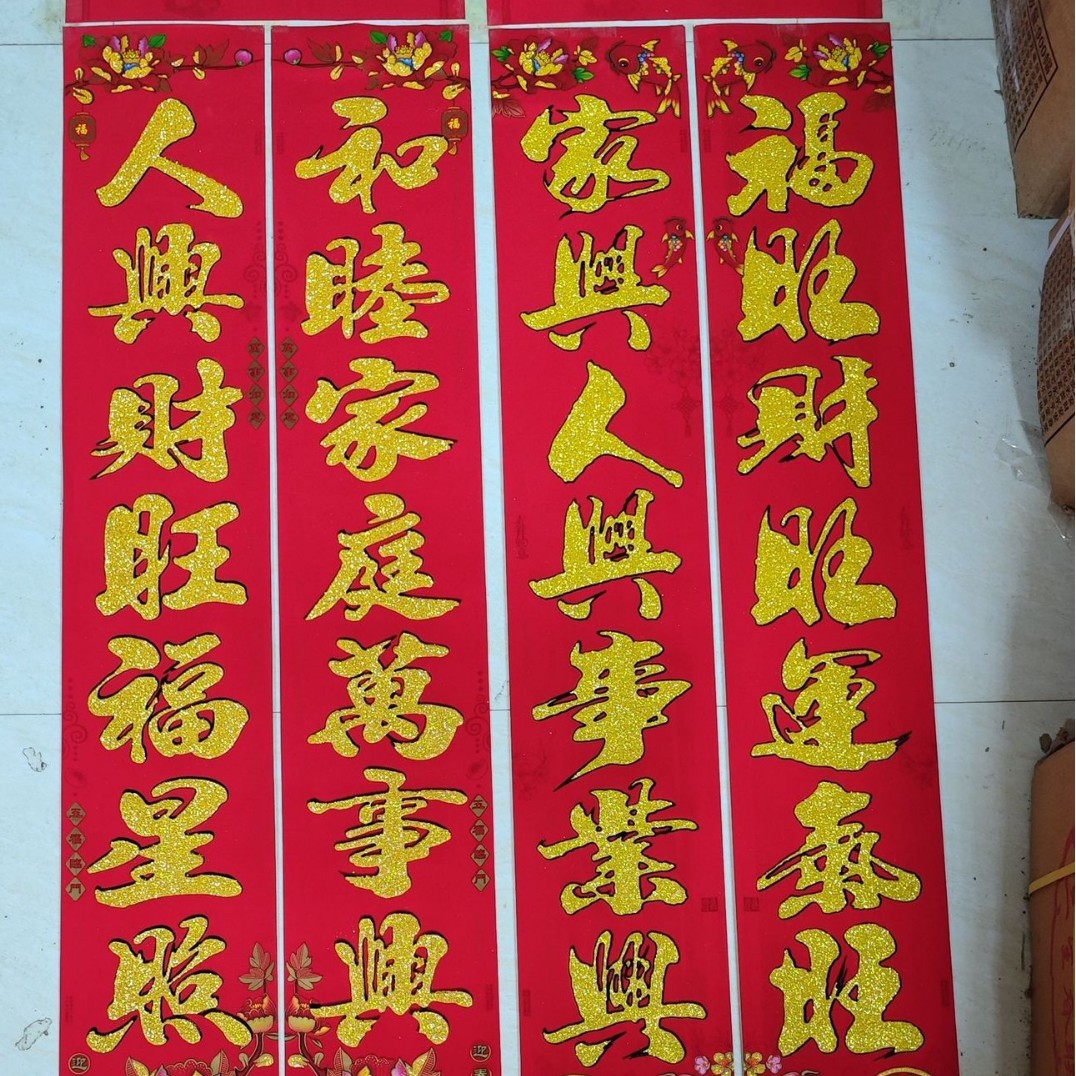 福旺財旺運氣旺
家興人興事業興
和睦家庭萬事興
福
五福臨門
迎春
人興財旺福星照
福
五福臨門
迎